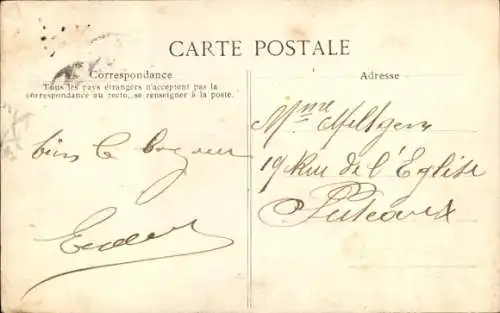 CARTE POSTALE
Correspondance
Tous les pays étrangers n'acceptent pas la
correspondance au recto, se renseigner à la poste.
Adresse
Mme
19 Rue de l'Eglise
Puteaux